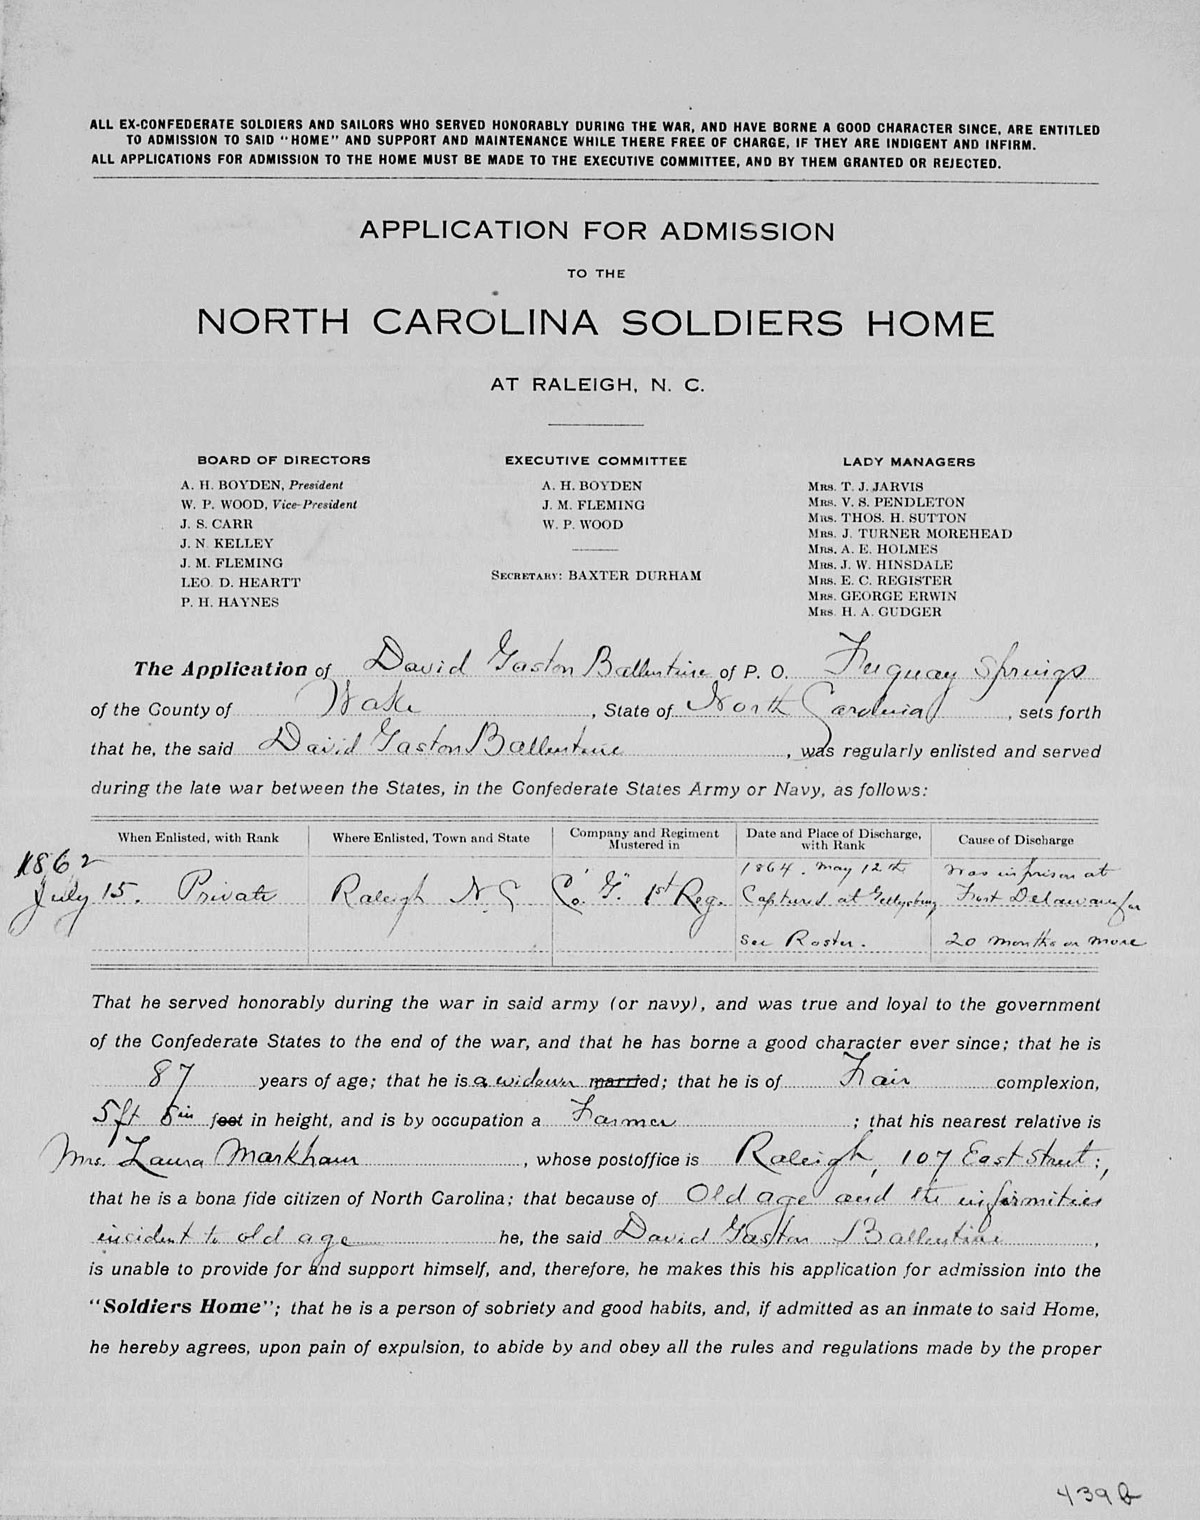 ALL EX-CONFEDERATE SOLDIERS AND SAILORS WHO SERVED HONORABLY DURING THE WAR, AND HAVE BORNE A GOOD CHARACTER SINCE, ARE ENTITLED
TO ADMISSION TO SAID "HOME" AND SUPPORT AND MAINTENANCE WHILE THERE FREE OF CHARGE, IF THEY ARE INDIGENT AND INFIRM.
ALL APPLICATIONS FOR ADMISSION TO THE HOME MUST BE MADE TO THE EXECUTIVE COMMITTEE, AND BY THEM GRANTED OR REJECTED.
APPLICATION FOR ADMISSION
TO THE
NORTH CAROLINA SOLDIERS HOME
AT RALEIGH, N. C.
BOARD OF DIRECTORS
A. H. BOYDEN, President
W. P. WOOD, Vice-President
J. S. CARR
J. N. KELLEY
J. M. FLEMING
LEO. D. HEARTT
P. H. HAYNES
EXECUTIVE COMMITTEE
A. H. BOYDEN
J. M. FLEMING
W. P. WOOD
SECRETARY: BAXTER DURHAM
LADY MANAGERS
MRS. T. J. JARVIS
MRS. V. S. PENDLETON
MRS. THOS. H. SUTTON
MRS. J. TURNER MOREHEAD
MRS. A. E. HOLMES
MRS. J. W. HINSDALE
MRS. E. C. REGISTER
MRS. GEORGE ERWIN
MRS. H. A. GUDGER
The Application of David Gaston Ballentine of P. O. Fuquay Springs
of the County of Wake, State of North Carolina, sets forth
that he, the said David Gaston Ballentine, was regularly enlisted and served
during the late war between the States, in the Confederate States Army or Navy, as follows:
When Enlisted, with Rank
Where Enlisted, Town and State
Company and Regiment Mustered in
Date and Place of Discharge, with Rank
Cause of Discharge
1862
July 15. Private
Raleigh N. C
Co. "G". 1st Reg.
1864. May 12th
Captured at Gettysburg
See Roster.
was in prison at
Fort Delaware for
20 months or more
That he served honorably during the war in said army (or navy), and was true and loyal to the government
of the Confederate States to the end of the war, and that he has borne a good character ever since; that he is
87 years of age; that he is a widower married; that he is of Fair complexion,
5 ft 8 in feet in height, and is by occupation a Farmer; that his nearest relative is
Mrs. Laura Markham, whose postoffice is Raleigh, 107 East Street;,
that he is a bona fide citizen of North Carolina; that because of Old age and the infirmities
incident to old age he, the said David Gaston Ballentine,
is unable to provide for and support himself, and, therefore, he makes this his application for admission into the
"Soldiers Home"; that he is a person of sobriety and good habits, and, if admitted as an inmate to said Home,
he hereby agrees, upon pain of expulsion, to abide by and obey all the rules and regulations made by the proper
439b